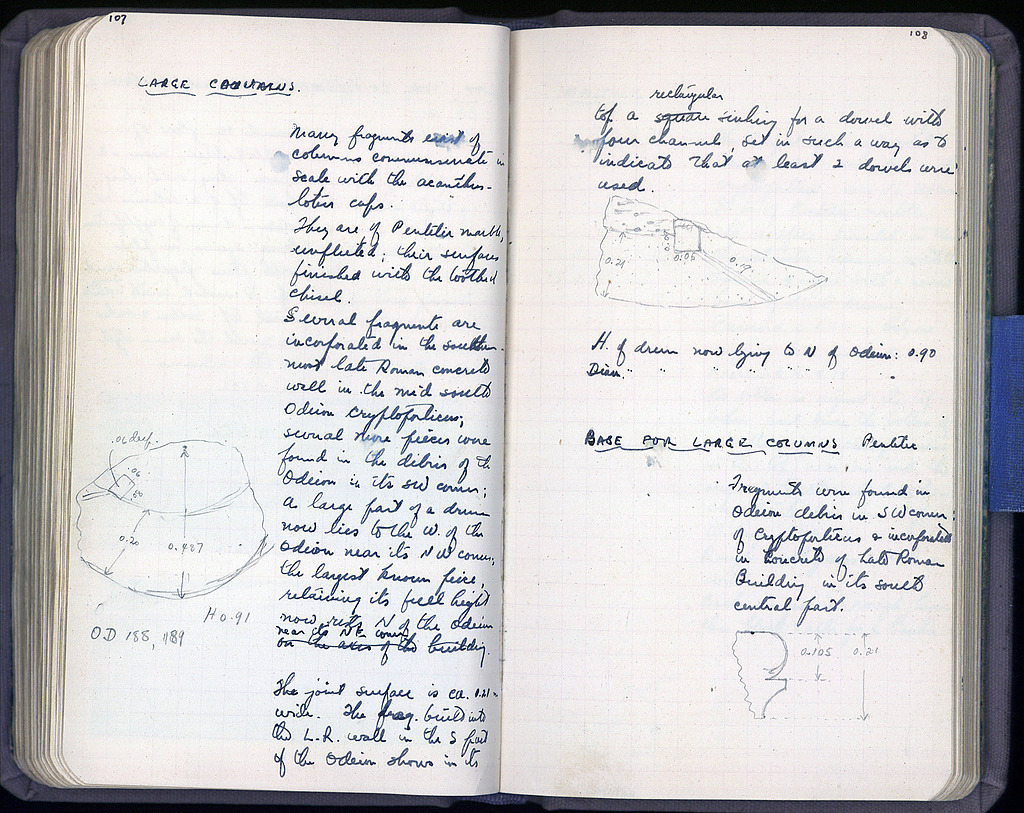 107
LARGE COLUMNS.
Many fragments exist of
columns commensurate in
scale with the acanthus-
lotus caps.
They are of Pentelic marble,
unfluted; their surfaces
finished with the toothed
chisel.
Several fragments are
incorporated in the southern-
most late Roman concrete
wall in the mid south
Odeion Cryptoporticus;
several more pieces were
found in the debris of the
Odeion in its SW corner;
a large part of a drum
now lies to the W. of the
Odeion near its NW corner;
the largest known piece,
retaining its full height
now rests N of the Odeion
near its NE corner
on the axis of the building.
The joint surface is ca. 0.21 m
wide. The frag. built into
the L.R. wall in the S part
of the Odeion shows in its
.06 deep.
.06
0.20
0.487
H 0.91
O.D 188, 1189
108
rectangular
top a square sinking for a dowel with
pour channel, set in such a way as to
indicate that at least 2 dowels were
used.
0.21
0.06
0.19
H. of drum now lying to N of Odeion: 0.90
Diam. " " " " " "
BASE FOR LARGE COLUMNS Pentelic
Fragments were found in
Odeion debris in SW corner
of Cryptoporticus & incorporated
in concrete of Late Roman
Building in its south
central part.
0.105
0.21